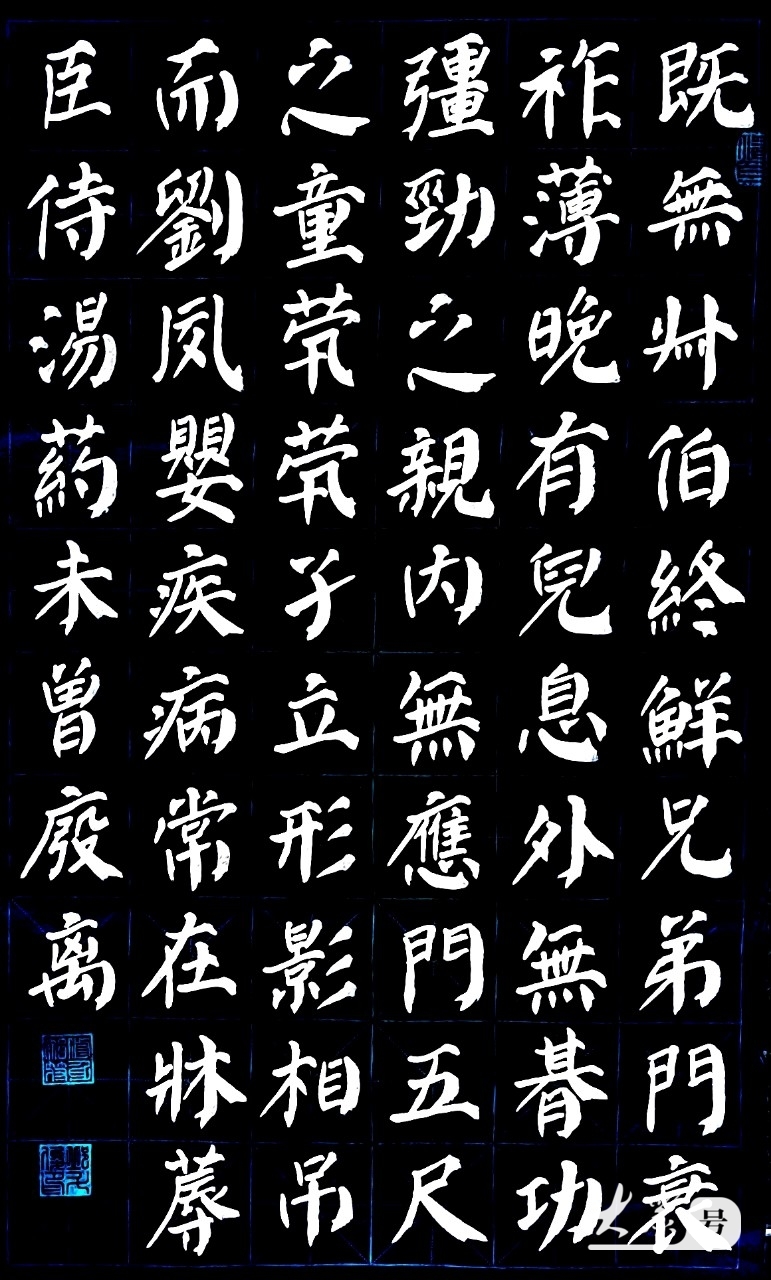 既無叔伯終鮮兄弟門衰
祚薄晚有兒息外無朞功
彊勁之親内無應門五尺
之童茕茕孑立形影相吊
而劉夙嬰疾病常在牀蓐
臣侍湯葯未曾廢离
号